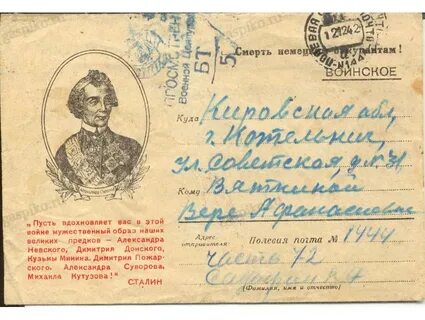 ПРОСМОТРЕНО
Военной Цензурой
БТ
5
ПОЛЕВАЯ
Смерть немецким оккупантам!
ВОИНСКОЕ
Куда Кировская обл,
г. Котельнич,
ул. Советская, д. № 31
Кому Вяткиной
Вере Афанасьевне
Адрес отправителя: Полевая почта № 1444
часть 72
(Фамилия, имя и отчество)
„Пусть вдохновляет вас в этой
войне мужественный образ наших
великих предков — Александра
Невского, Димитрия Донского,
Кузьмы Минина, Димитрия Пожар-
ского, Александра Суворова,
Михаила Кутузова!"
СТАЛИН